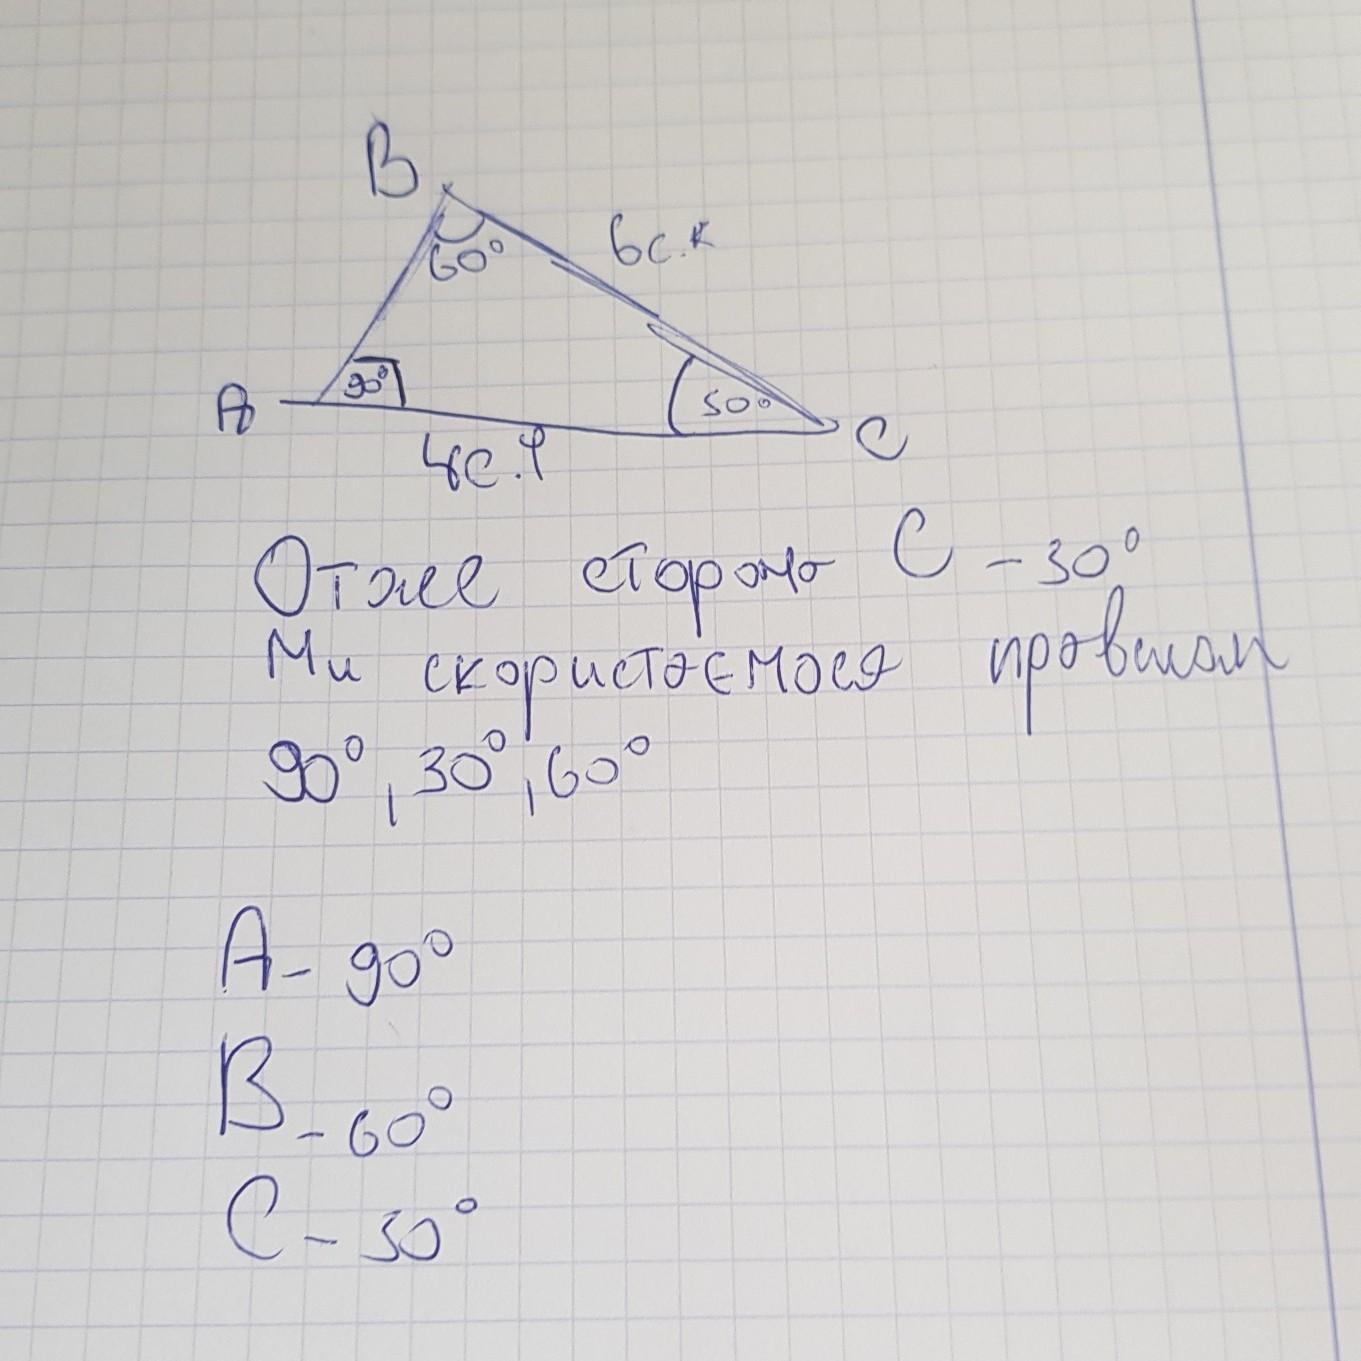 B
60°
6с.к
A
90°
50°
C
4с.
Отже сторона C - 30°
Ми скористаємося правилом
90°, 30°, 60°
A - 90°
B - 60°
C - 30°